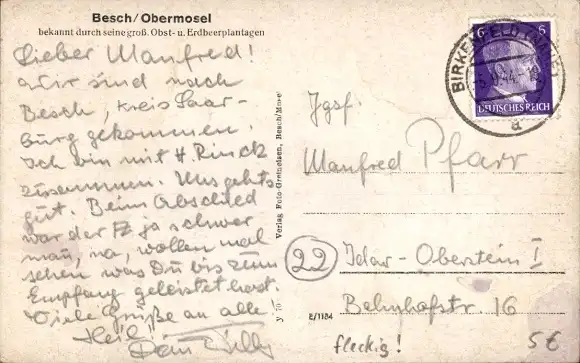 Besch/Obermosel
bekannt durch seine groß. Obst- u. Erdbeerplantagen
Lieber Manfred!
Wir sind nach
Besch, Kreis Saar-
burg gekommen.
Ich bin mit H. Rinck
zusammen. Uns gehts
gut. Beim Abschied
war der Fz ja schwer
na, wollen mal
sehen was Du bis zum
Empfang geleistet hast.
Viele Grüße an alle,
Heil!
Dein Willy
Verlag Foto-Greimeisen, Besch/Mosel
6 6
DEUTSCHES REICH
BIRKENFELD
44
a
Jgsf.
Manfred Pfarr
22
Idar-Oberstein I
Bahnhofstr. 16
y 70
E/1184
fleckig!
5€